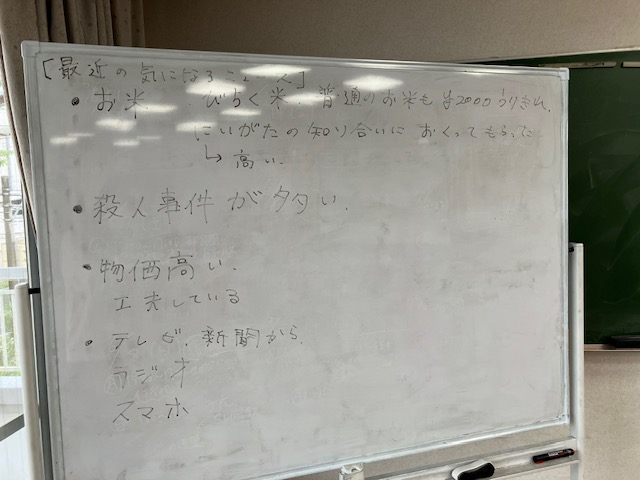 [最近の気になるニュース]
• お米. びちく米. 普通のお米も ¥2000 うりきれ.
にいがたの知り合いに おくってもらった
↳ 高い.
• 殺人事件が多い.
• 物価高い.
工夫している
• テレビ. 新聞から.
ラジオ
スマホ